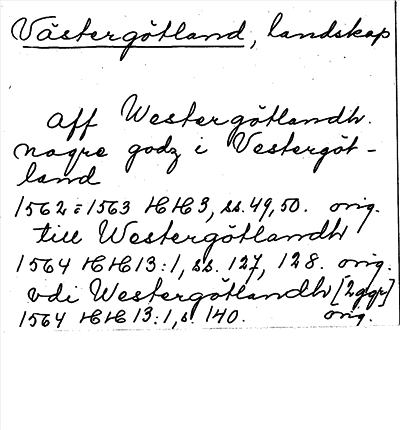 Västergötland, landskap
aff Westergötlandh.
nagre godz i Vestergöt-
land
1562=1563 HH3, ss. 49, 50. orig.
till Westergötlandh
1564 HH13:1, ss. 127, 128. orig.
vdi Westergötlandh [2 ggr]
1564 HH13:1, s. 140. orig.